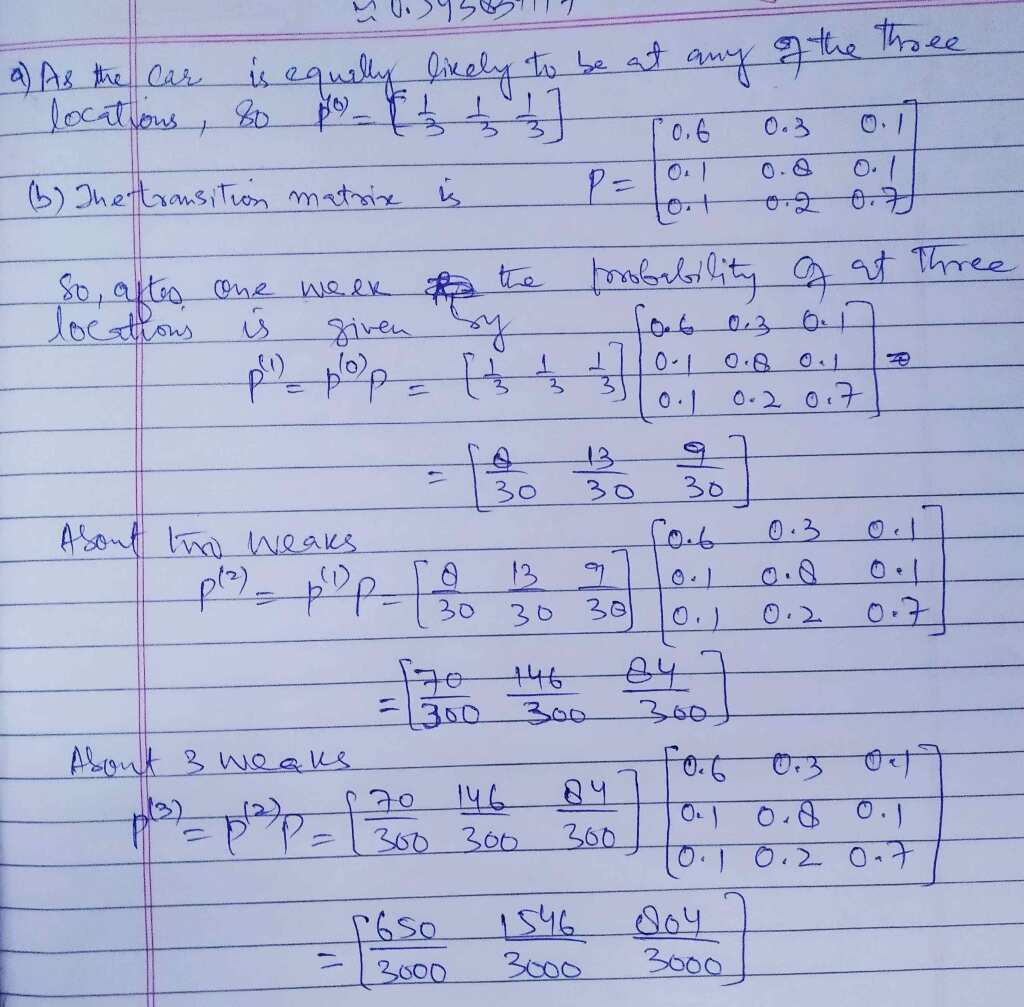 a) As the car is equally likely to be at any of the three
locations, so p^(0) = [1/3 1/3 1/3]
(b) The transition matrix is P = [0.6 0.3 0.1
0.1 0.8 0.1
0.1 0.2 0.7]
So, after one week the probability of at three
locations is given by
p^(1) = p^(0) P = [1/3 1/3 1/3] [0.6 0.3 0.1
0.1 0.8 0.1
0.1 0.2 0.7] =
= [8/30 13/30 9/30]
About two weaks
p^(2) = p^(1) P = [8/30 13/30 9/30] [0.6 0.3 0.1
0.1 0.8 0.1
0.1 0.2 0.7]
= [70/300 146/300 84/300]
About 3 weaks
p^(3) = p^(2) P = [70/300 146/300 84/300] [0.6 0.3 0.1
0.1 0.8 0.1
0.1 0.2 0.7]
= [650/3000 1546/3000 804/3000]